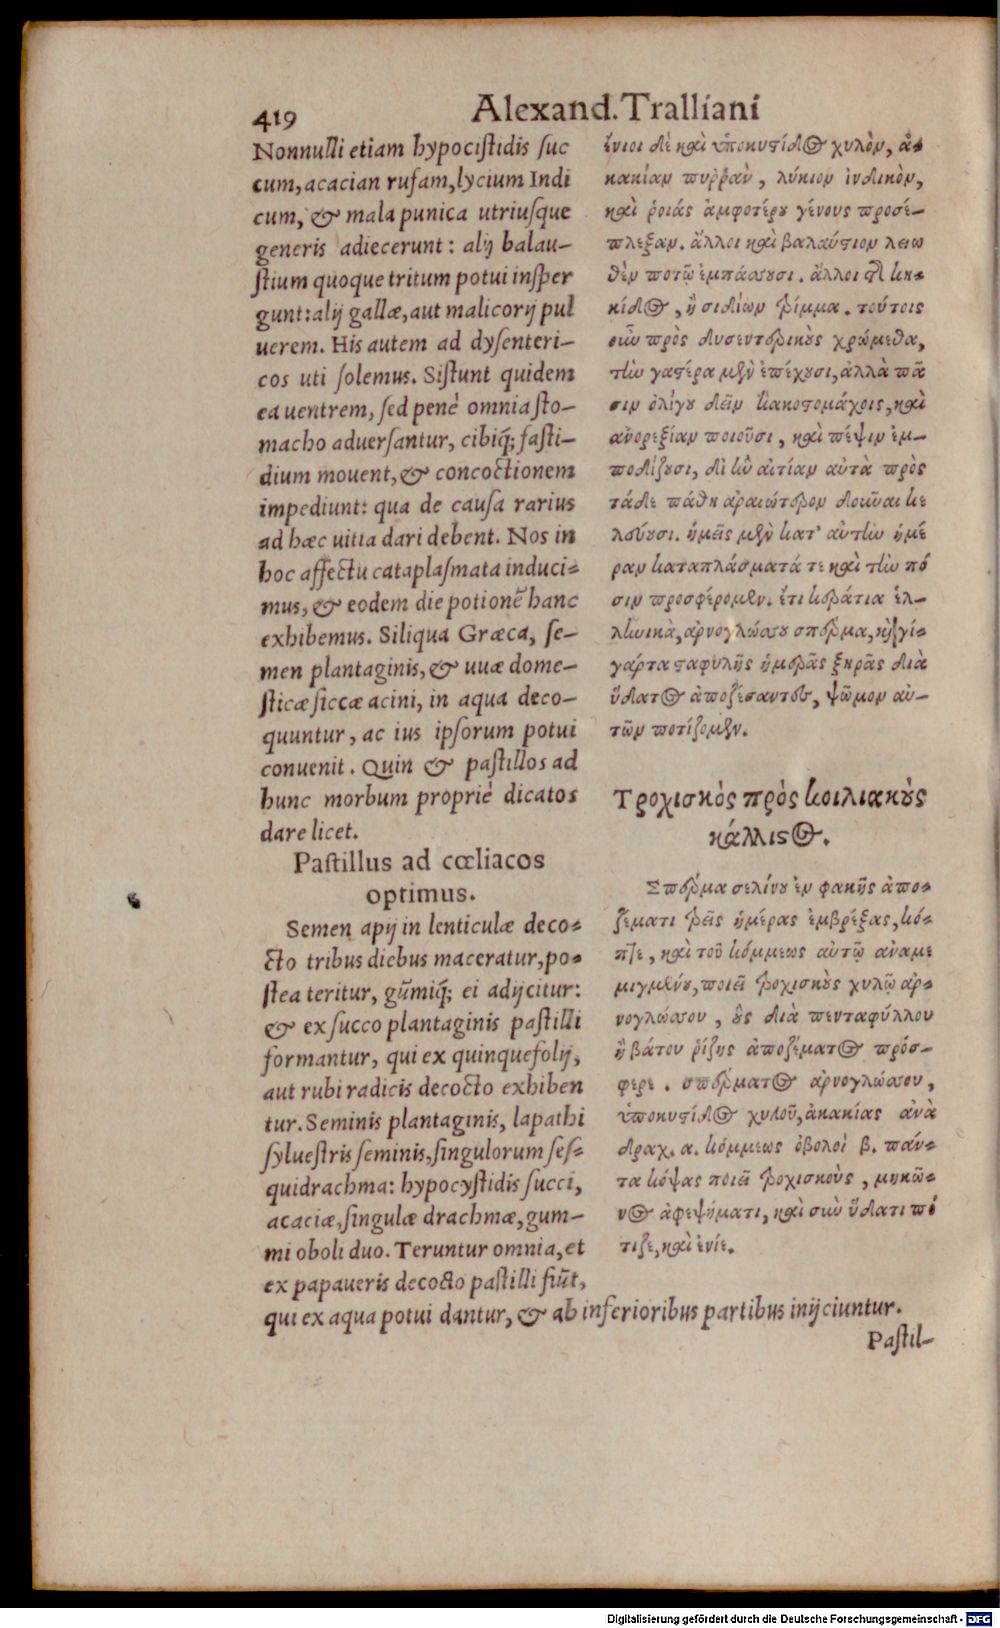 419
Alexand. Tralliani
Nonnulli etiam hypociſtidis ſuc
cum, acacian rufam, lycium Indi
cum, & mala punica utriuſque
generis adiecerunt: alij balau-
ſtium quoque tritum potui inſper
gunt: alij gallæ, aut malicorij pul
uerem. His autem ad dyſenteri-
cos uti ſolemus. Siſtunt quidem
ea uentrem, ſed penè omnia ſto-
macho aduerſantur, cibiq́; faſti-
dium mouent, & concoctionem
impediunt: qua de cauſa rarius
ad hæc uitia dari debent. Nos in
hoc affectu cataplaſmata induci-
mus, & eodem die potionẽ hanc
exhibemus. Siliqua Græca, ſe-
men plantaginis, & uuæ dome-
ſticæ ſiccæ acini, in aqua deco-
quuntur, ac ius ipſorum potui
conuenit. Quin & paſtillos ad
hunc morbum propriè dicatos
dare licet.
Paſtillus ad cœliacos
optimus.
Semen apij in lenticulæ deco-
cto tribus diebus maceratur, po-
ſtea teritur, gũmiq́; ei adijcitur:
& ex ſucco plantaginis paſtilli
formantur, qui ex quinquefolij,
aut rubi radicis decocto exhiben
tur. Seminis plantaginis, lapathi
ſylueſtris ſeminis, ſingulorum ſeſ-
quidrachma: hypocyſtidis ſucci,
acaciæ, ſingulæ drachmæ, gum-
mi oboli duo. Teruntur omnia, et
ex papaueris decocto paſtilli fiũt,
qui ex aqua potui dantur, & ab inferioribus partibus inijciuntur.
ἔνιοι δὲ καὶ ὑποκυστίδος χυλὸν, ἀ-
κακίαν πυῤῥὰν, λύκιον ἰνδικὸν,
καὶ ῥοιάς ἀμφοτέρου γένους προσέ-
πλεξαν. ἄλλοι καὶ βαλαύστιον λειω
θὲν ποτῷ ἐμπάσσουσι. ἄλλοι δὲ κη-
κίδος, ἢ σιδίων τρίμμα. τούτοις
οὖν πρὸς δυσεντερικοὺς χρώμεθα,
τὴν γαστέρα μὲν ἐπέχουσι, ἀλλὰ πᾶ
σιν ὀλίγου δεῖν κακοστομάχοις, καὶ
ἀνορεξίαν ποιοῦσι, καὶ πέψιν ἐμ-
ποδίζουσι, δι' ἣν αἰτίαν αὐτὰ πρὸς
τάδε πάθη ἀραιώτερον δοῦναι κε
λεύουσι. ἡμεῖς μὲν κατ' αὐτὴν ἡμέ
ραν καταπλάσματά τε καὶ τὴν πό
σιν προσφέρομεν. ἔτι κεράτια ἑλ-
ληνικὰ, ἀρνογλώσσου σπέρμα, καὶ γί-
γαρτα σταφυλῆς ἡμερᾶς ξηρᾶς διὰ
ὕδατος ἀποζέσαντες, ψῶμον αὐ-
τῶν ποτίζομεν.
Τροχισκὸς πρὸς κοιλιακοὺς
κάλλιστος.
Σπέρμα σελίνου ἐν φακῆς ἀπο-
ζέματι τρεῖς ἡμέρας ἐμβρέξας, κό-
πτε, καὶ τοῦ κόμμεως αὐτῷ ἀναμε
μιγμένου, ποίει τροχισκοὺς χυλῷ ἀρ-
νογλώσσου, οὓς διὰ πενταφύλλου
ἢ βάτου ῥίζης ἀποζέματος πρόσ-
φερε. σπέρματος ἀρνογλώσσου,
ὑποκυστίδος χυλοῦ, ἀκακίας ἀνὰ
δραχ. α. κόμμεως ὀβολοὶ β. πάν-
τα κόψας ποίει τροχισκοὺς, μηκῶ-
νος ἀφεψήματι, καὶ σὺν ὕδατι πό
τιζε, καὶ ἐνίε.
Paſtil-
Digitalisierung gefördert durch die Deutsche Forschungsgemeinschaft - DFG